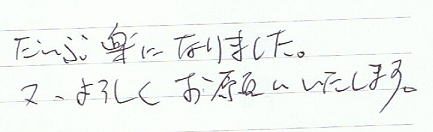 だいぶ楽になりました。
又、よろしくお願いいたします。